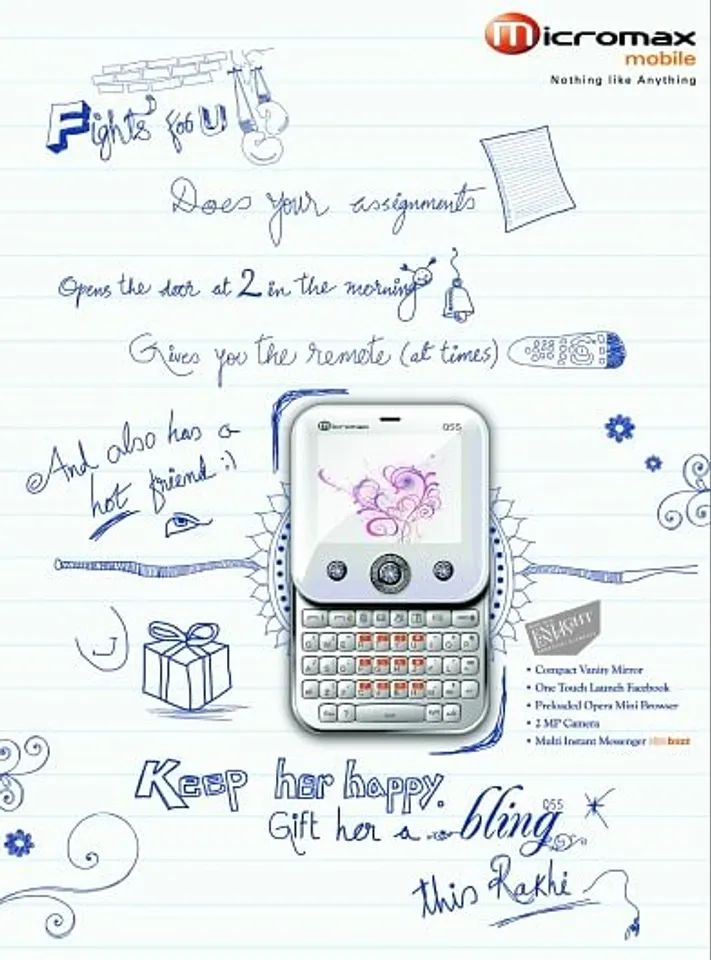 micromax
mobile
Nothing like Anything
Fights for U
Does your assignments
Opens the door at 2 in the morning
Gives you the remote (at times)
And also has a
hot friend :)
micromax Q55
Compact Vanity Mirror
One Touch Launch Facebook
Preloaded Opera Mini Browser
2 MP Camera
Multi Instant Messenger buzz
Keep her happy.
Gift her a Q55 bling
this Rakhi